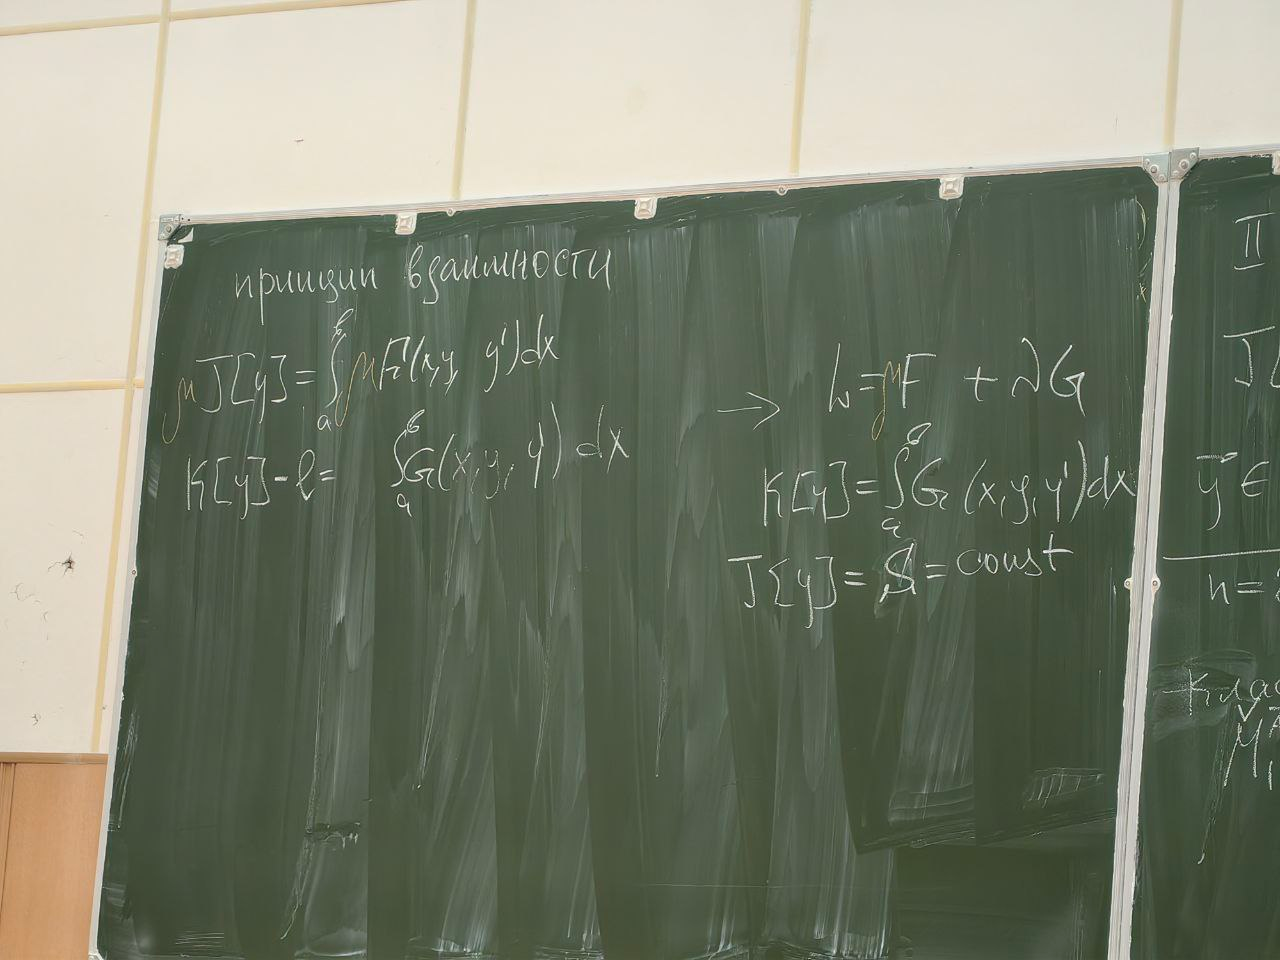 принцип взаимности
μJ[y] = ∫ₐᵇ μF(x, y, y')dx
K[y] - l = ∫ₐᵇ G(x, y, y') dx
→ L = μF + λG
K[y] = ∫ₐᵇ G(x, y, y')dx
J[y] = S = const
II
J[
y⃗ ∈
n =